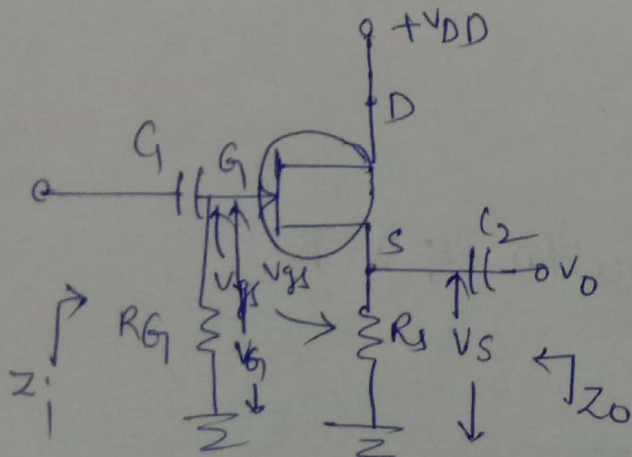 +VDD
D
C1 G
S C2
Vgs Vgs
V0
RG VG RS VS
Zi
Z0